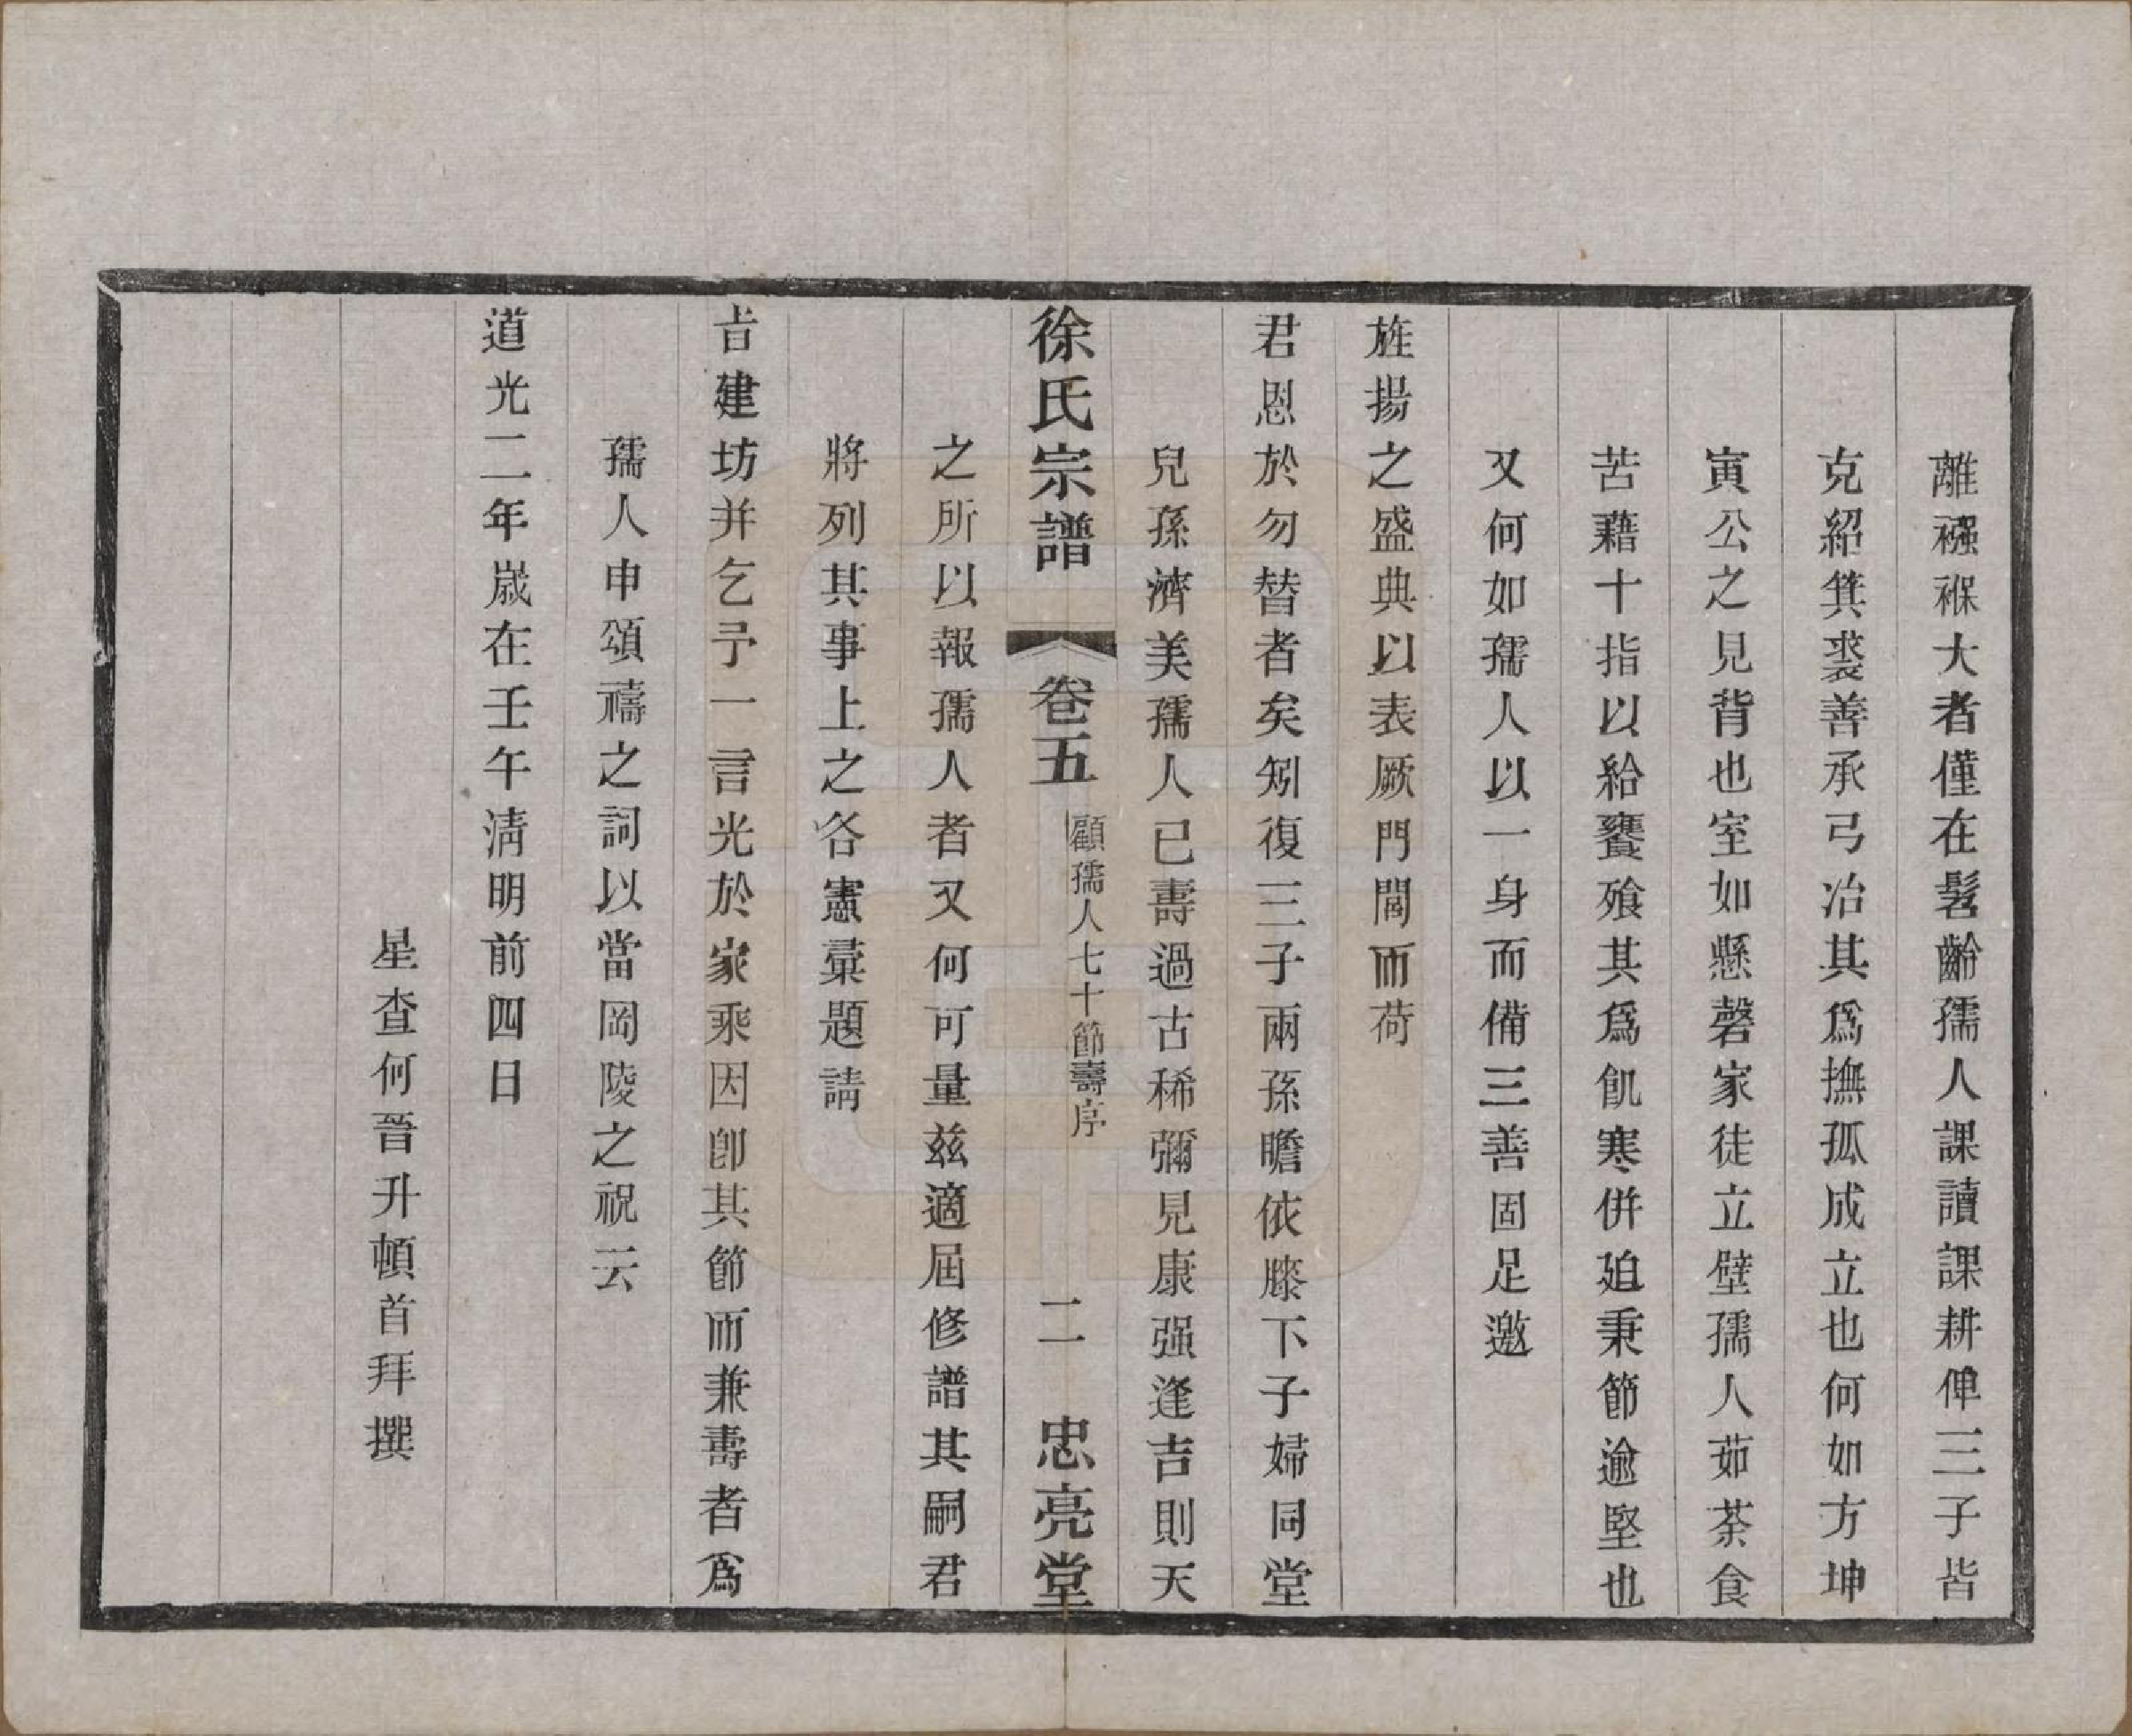 離襁褓大者僅在髫齡孺人課讀課耕俾三子皆
克紹箕裘善承弓冶其爲撫孤成立也何如方坤
寅公之見背也室如懸磬家徒立壁孺人茹荼食
苦藉十指以給饔飧其爲飢寒併廹秉節逾堅也
又何如孺人以一身而備三善固足邀
旌揚之盛典以表厥門閭而荷
君恩於勿替者矣矧復三子兩孫瞻依膝下子婦同堂
兒孫濟美孺人已壽過古稀彌見康强逢吉則天
徐氏宗譜
卷五
顧孺人七十節壽序
二
忠亮堂
之所以報孺人者又何可量兹適屆修譜其嗣君
將列其事上之各憲彙題請
旨建坊并乞予一言光於家乘因卽其節而兼壽者爲
孺人申頌禱之詞以當岡陵之祝云
道光二年歲在壬午淸明前四日
星查何晉升頓首拜撰